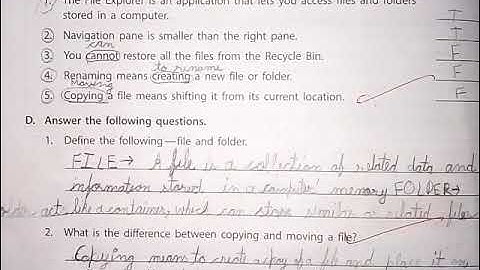 1. The File Explorer is an application that lets you access files and folders
stored in a computer. T
2. Navigation pane is smaller than the right pane. T
can
3. You cannot restore all the files from the Recycle Bin. F
to rename
4. Renaming means creating a new file or folder. F
Moving
5. Copying a file means shifting it from its current location. F
D. Answer the following questions.
1. Define the following—file and folder.
FILE→ A file is a collection of related data and
information stored in a computer memory FOLDER→
act like a container, which can store similar or related files
2. What is the difference between copying and moving a file?
Copying means to create a copy of a file and place it